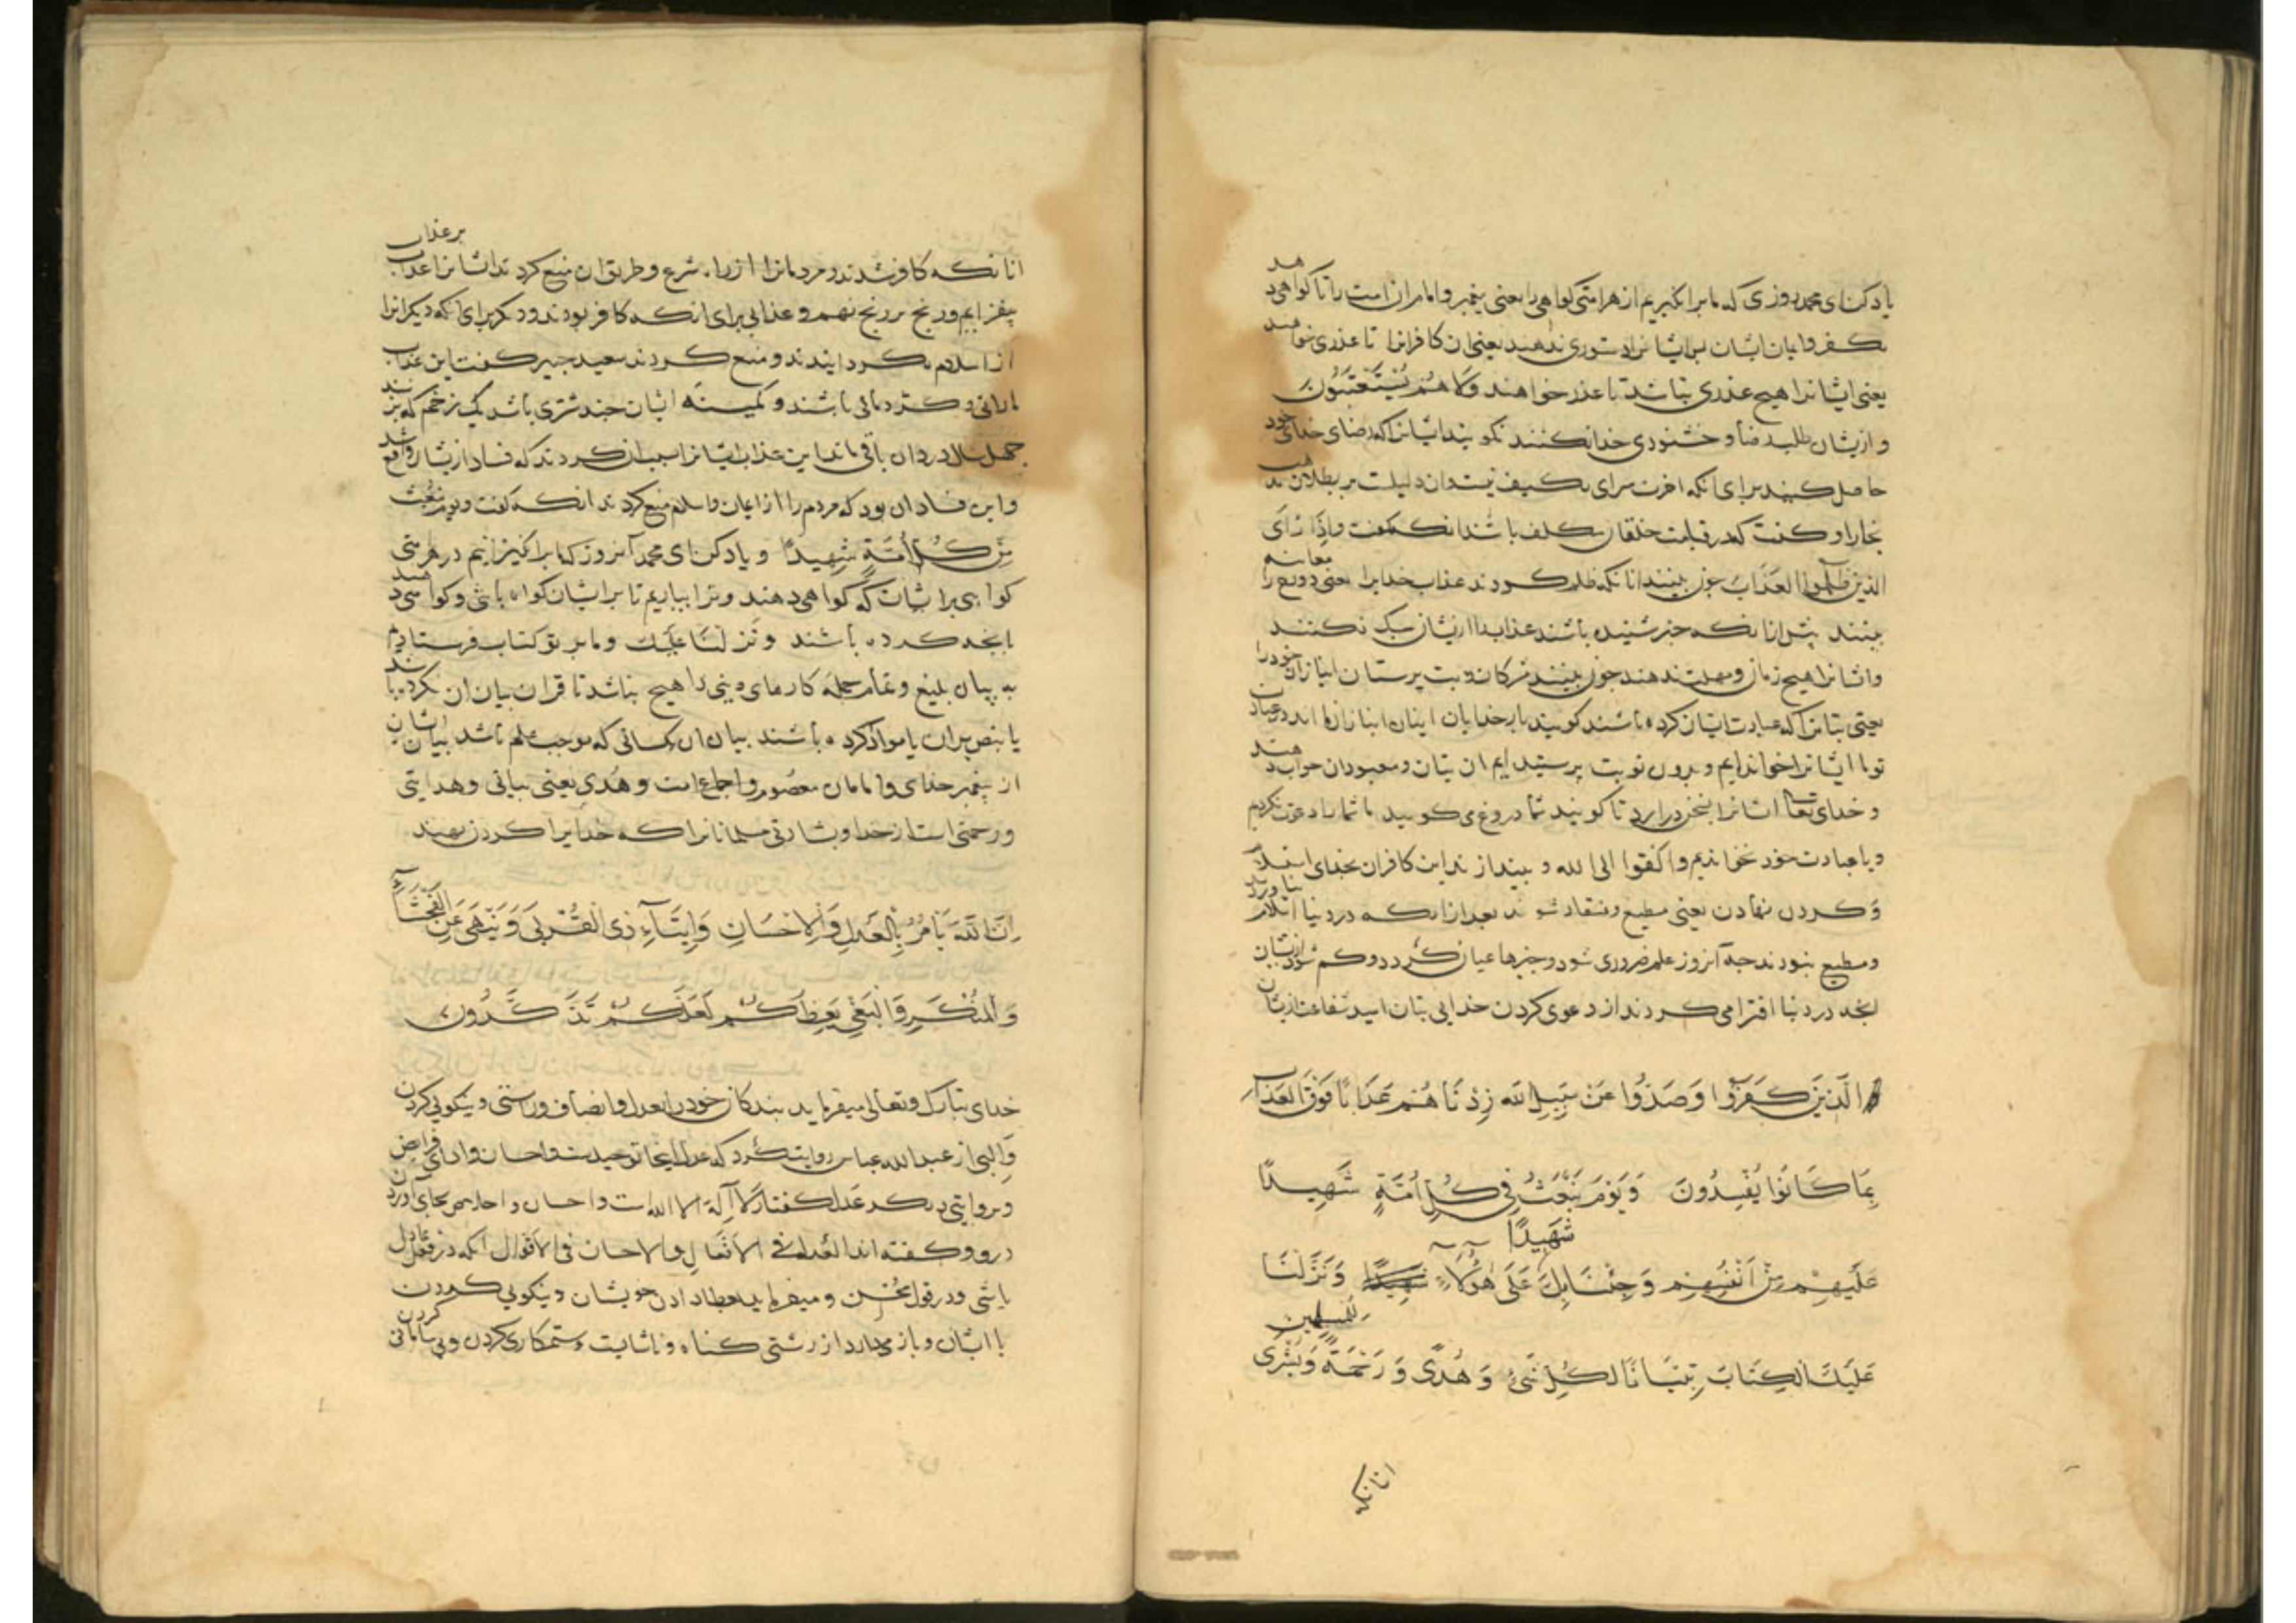 یاد کن ای محمد روزی که ما برانگیزیم از هر امتی گواهی را یعنی پیغمبر و امامان از امت را تا گواهی دهند
بکفر و ایمان ایشان پس ایشانرا دستوری ندهند یعنی ان کافرانرا تا عذری خواهند
یعنی ایشانرا هیچ عذری نباشد تا عذر خواهند وَلَا هُمْ یُسْتَعْتَبُونَ
و ازیشان طلب رضا و خشنودی خدا نکنند نکویند ایشانرا که رضای خدای خود
حاصل کنید برای انکه اخرت سرای تکلیف نیست و ان دلیلست بر بطلان مذهب
نجار او کفت که در قیامت خلقان مکلف باشند انکه کفت وَاِذَا رَأَی
الَّذِینَ ظَلَمُوا العَذَابَ چون بینند انانکه ظلم کردند عذاب خدایرا یعنی دوزخ را معاینه
بینند پیش ازانکه خبر شنیده باشند عذاب را ازیشان سبک نکنند
و ایشانرا هیچ زمان و مهلت ندهند چون بینند مشرکان و بت پرستان انبازان خود را
یعنی بتانرا که عبادت ایشان کرده باشند کویند بار خدایان اینان انبازان ما اند در عبادت
تو ما ایشانرا خواندایم و بدون تو بت پرستیدایم ان بتان و معبودان جواب دهند
و خدای تعالی ایشانرا بسخن درارد تا کویند شما دروغ می کویید ما شما را دعوت نکردیم
و با عبادت خود نخواندیم وَاَلْقَوْا اِلَی الله و بیندازند این کافران بخدای استسلام
و کردن نهادن یعنی مطیع و منقاد شوند بعد ازانکه در دنیا اسلام نیاوردند
و مطیع نبودند چه آنروز علم ضروری شود و خبرها عیان کردد و کم شود ازیشان
انچه در دنیا افترا می کردند از دعوی کردن خدایی بتان امید شفاعت ازیشان
الَّذِینَ کَفَرُوا وَصَدُّوا عَنْ سَبِیلِ اللَّه زِدْنَاهُمْ عَذَابًا فَوْقَ العَذَابِ
بِمَا کَانُوا یُفْسِدُونَ وَیَوْمَ نَبْعَثُ فِی کُلِّ اُمَّةٍ شَهِیدًا
عَلَیْهِمْ مِنْ اَنْفُسِهِمْ وَجِئْنَا بِکَ عَلَی هٰؤُلَاءِ شَهِیدًا وَنَزَّلْنَا
عَلَیْکَ الکِتَابَ تِبْیَانًا لِکُلِّ شَیْءٍ وَهُدًی وَرَحْمَةً وَبُشْرَی لِلْمُسْلِمِینَ
انانکه
انانکه کافر شدند و مردمانرا از راه شرع و طریق ان منع کردند ایشانرا عذاب بر عذاب
بیفزاییم و رنج بر رنج نهیم و عذابی برای انکه کافر بودند و دیکر برای انکه دیکرانرا
از اسلام بکردانیدند و منع کردند سعید جبیر کفت این عذاب
مارانی و کژدمانی باشند و کمینه ایشان چند شتری باشد یک زخم که بزنند
چهل سال درد ان باقی ماند این عذاب ایشانرا سبب ان کردند که فساد ازیشان واقع شد
و این فساد ان بود که مردم را از ایمان و اسلام منع کردند انکه کفت وَیَوْمَ نَبْعَثُ
مِنْ کُلِّ اُمَّةٍ شَهِیدًا و یاد کن ای محمد آنروز که ما برانکیزانیم در هر امتی
کواهی بر ایشان که کواهی دهند و ترا بیاریم تا بر ایشان کواه باشی و کواهی دهید
بانچه کرده باشند وَنَزَّلْنَا عَلَیْکَ و ما بر تو کتاب فرستادیم
به بیان بلیغ و تمام جمله کارهای دینی را هیچ نباشد تا قران بیان ان نکرده باشد
یا بنص بران یا موادکرده باشند بیان ان کسانی که موجب علم باشد بیانشان
از پیغمبر خدای و امامان معصوم و اجماع امت وَهُدًی یعنی بیانی و هدایتی
و رحمتی است از خدا و بشارتی مسلمانانرا که خدایرا کردن نهند
اِنَّ اللَّهَ یَأمُرُ بِالْعَدْلِ وَالْاِحْسَانِ وَاِیتَآءِ ذِی الْقُرْبَی وَیَنْهَی عَنِ الْفَحْشَآءِ
وَالْمُنْکَرِ وَالْبَغْیِ یَعِظُکُمْ لَعَلَّکُمْ تَذَکَّرُونَ
خدای تبارک و تعالی میفرماید بندکان خود را بعدل و انصاف و راستی و نیکویی کردن
والبی از عبدالله عباس روایت کرد که عدل اینجا توحیدست و احسان ادای فرایض
و بروایتی دیکر عدل کفتار لَا اِلَهَ الا الله است و احسان و اخلاص بجای آوردن
درو و کفته اند العدل فی الاَفْعَالِ والاحسان فی الاَقْوَال انکه در فعل عادل
باشی و در قول محسن و میفرماید بعطا دادن خویشان و نیکویی کردن
با ایشان و باز میدارد از زشتی کناه و ناشایست و ستمکاری کردن و بی سامانی کردن